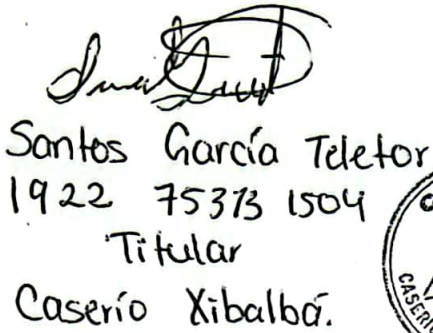 Santos García Teletor
1922 75373 1504
Titular
Caserío Xibalbá.
CASERÍO